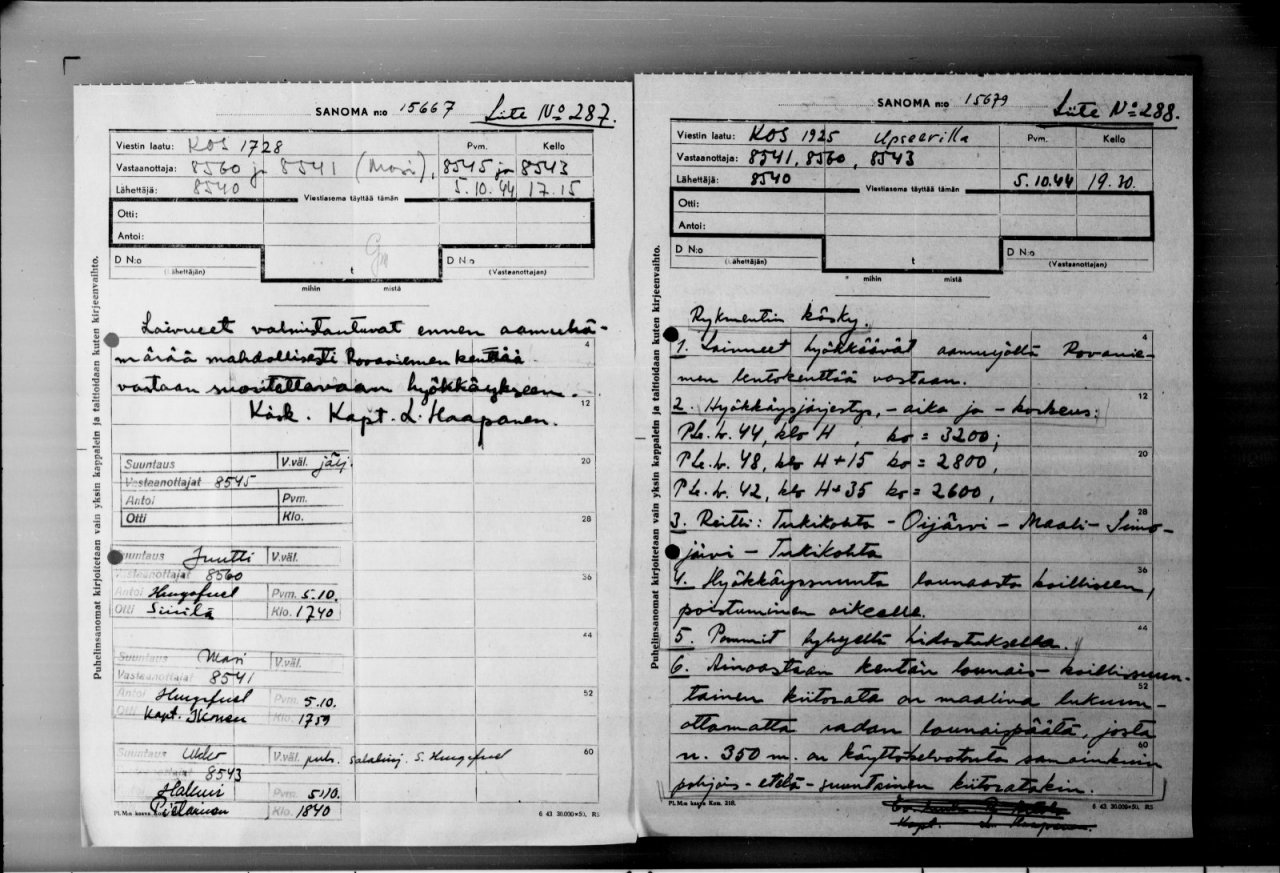 SANOMA n:o 15667 Liite No 287.
Viestin laatu: KOS 1728 Pvm. Kello
Vastaanottaja: 8560 ja 8541 (Masi), 8545 ja 8543
Lähettäjä: 8540 5.10.44 17.15
Viestiasema täyttää tämän
Otti:
Antoi:
D N:o D N:o
(Lähettäjän) t (Vastaanottajan)
mihin mistä
Puhelinsanomat kirjoitetaan vain yksin kappalein ja taltioidaan kuten kirjeenvaihto.
Laivueet valmistautuvat ennen aamuhä-
4
märää mahdollisesti Rovaniemen kenttää
vastaan suoritettavaan hyökkäykseen.
12
Käsk. Kapt. L Haapanen.
20
Suuntaus V.väl. jälj.
Vastaanottajat 8545
Antoi Pvm.
Otti Klo.
28
Suuntaus Juutti V.väl.
Vastaanottajat 8560
36
Antoi Hungefuel Pvm. 5.10.
Otti Siirilä Klo. 1740
44
Suuntaus Masi V.väl.
Vastaanottajat 8541
52
Antoi Hungefuel Pvm. 5.10.
Otti Kapt. Ikonen Klo. 1759
60
Suuntaus Ukko V.väl. puh. S. Hungefuel
8543
Pvm. 5.10.
Pietarinen Klo. 1840
Pl.M:n kaava Kom. 6 43 30.000×50, RS
SANOMA n:o 15679 Liite No 288.
Viestin laatu: KOS 1925 Upseerilla Pvm. Kello
Vastaanottaja: 8541, 8560, 8543
Lähettäjä: 8540 5.10.44 19.30
Viestiasema täyttää tämän
Otti:
Antoi:
D N:o D N:o
(Lähettäjän) t (Vastaanottajan)
mihin mistä
Puhelinsanomat kirjoitetaan vain yksin kappalein ja taltioidaan kuten kirjeenvaihto.
Rykmentin käsky.
4
1. Laivueet hyökkäävät aamuyöllä Rovanie-
men lentokenttää vastaan.
12
2. Hyökkäysjärjestys, -aika ja -korkeus:
Ple.Lv. 44, klo H, ko = 3200;
20
Ple.Lv. 48, klo H+15 ko = 2800,
Ple.Lv. 42, klo H+35 ko = 2600,
28
3. Reitti: Tukikohta - Oijärvi - Maali - Simo-
järvi - Tukikohta
36
4. Hyökkäyssuunta lounaasta koilliseen,
poistuminen oikealle.
44
5. Pommit lyhyellä hidastuksella.
6. Ainoastaan kentän lounais-koillissuun-
52
tainen kiitorata on maalina lukuun-
ottamatta radan lounaispäätä, josta
60
n. 350 m. on käyttökelvotonta samoinkuin
pohjois-etelä-suuntainen kiitoratakin.
Pl.M:n kaava Kom. 218. 6 43 30.000×50, RS